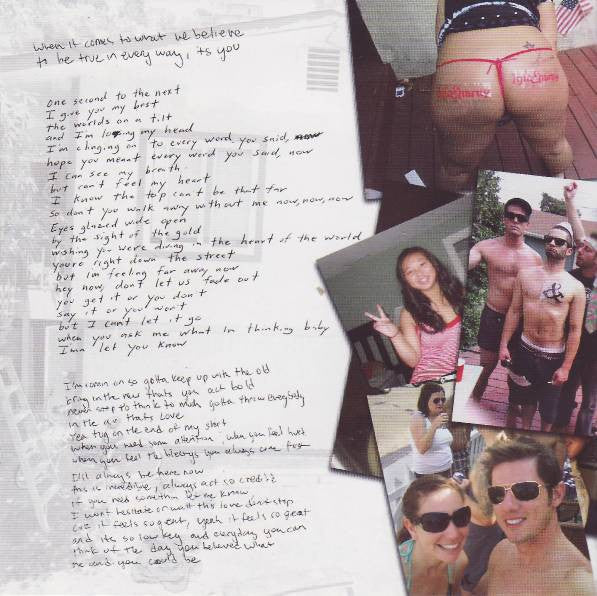 When it comes to what we believe
to be true in every way, its you
One second to the next
I give you my best
the worlds on a tilt
and I'm losing my head
I'm clinging on to every word you said,
hope you meant every word you said, now
I can see my breath
but can't feel my heart
I know the top can't be that far
so don't you walk away without me now, now, now
Eyes glazed wide open
by the sight of the gold
wishing you were diving in the heart of the world
you're right down the street
but im feeling far away now
hey now, don't let us fade out
you get it or you don't
say it or you won't
but I can't let it go
when you ask me what im thinking baby
Imma let you know
I'm comin on so gotta keep up with the old
bring in the new thats you act bold
never stop to think to much gotta throw everybody
in the air thats love
Yea tug on the end of my shirt
when you need some attention, when you feel hurt
when you feel the blessings you always come first
I'll always be here now
this is incredible, always act so
if you need somethin let me know
I wont hesitate or wait this love dont stop
cuz it feels so great, yeah it feels so great
and its so low key and everyday you can
think of the day you believed what
me and you could be